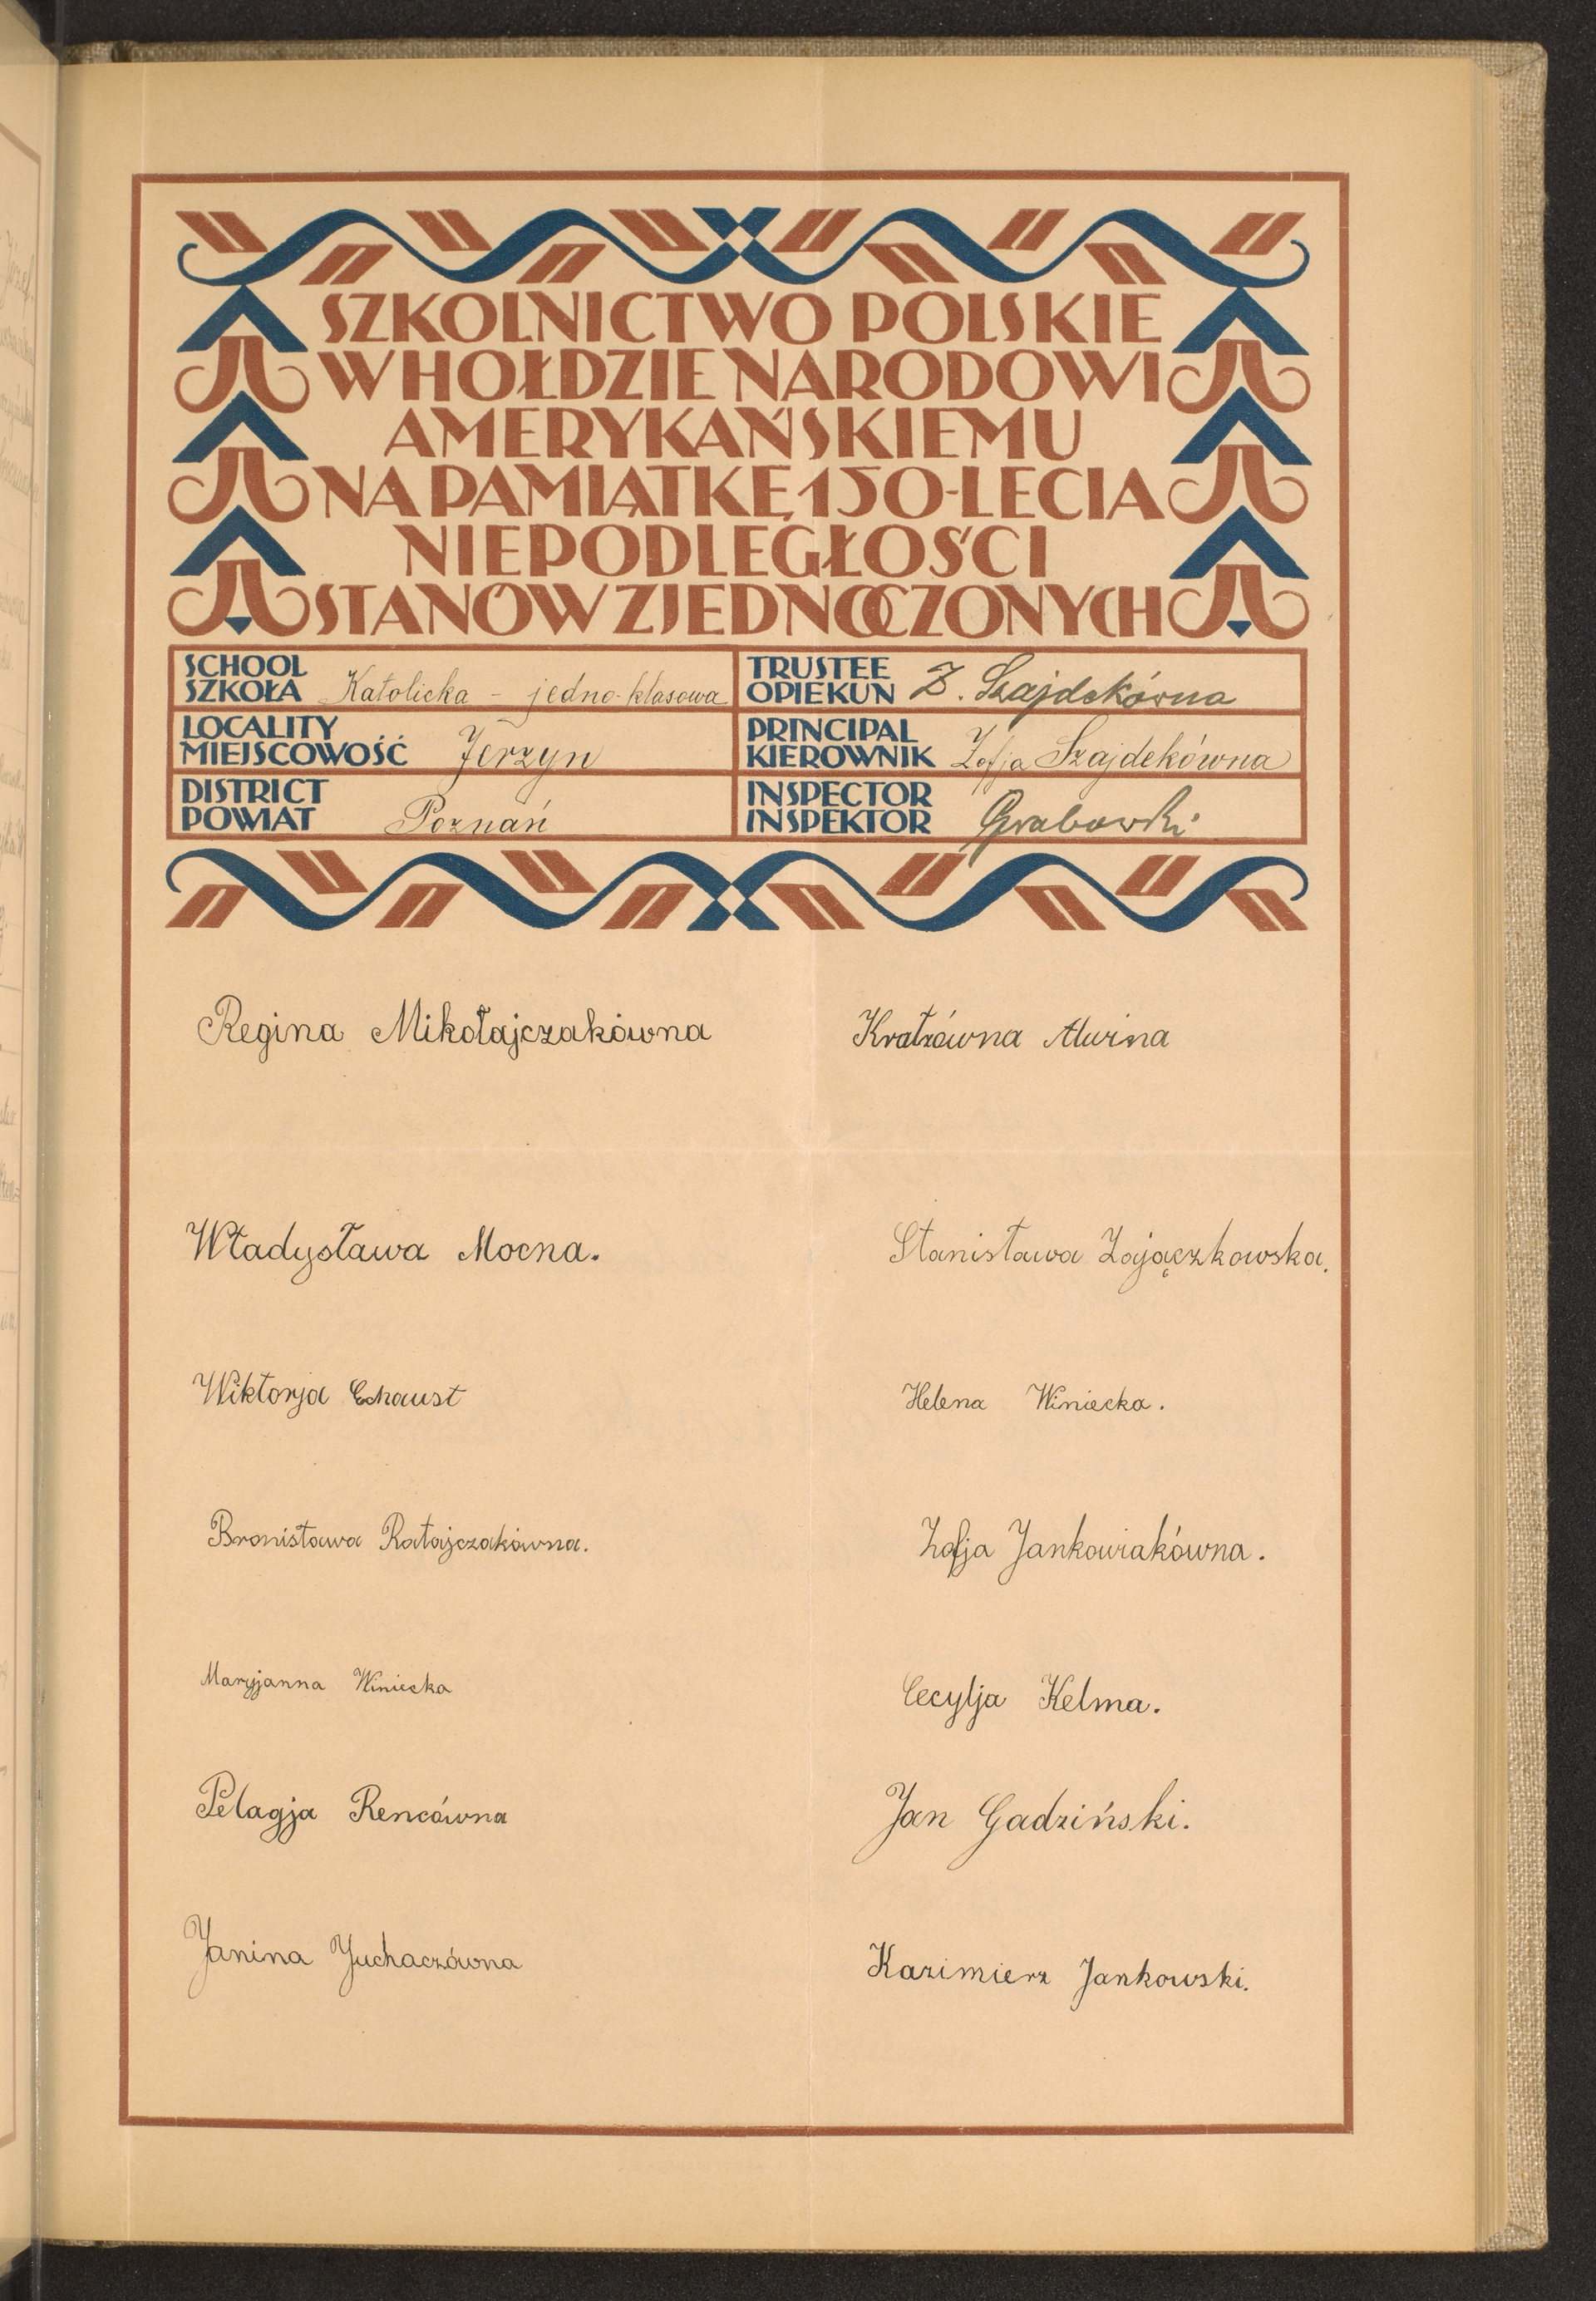 SZKOLNICTWO POLSKIE
W HOŁDZIE NARODOWI
AMERYKAŃSKIEMU
NA PAMIĄTKĘ 150-LECIA
NIEPODLEGŁOŚCI
STANÓW ZJEDNOCZONYCH
SCHOOL
SZKOŁA Katolicka - jedno-klasowa
TRUSTEE
OPIEKUN Z. Szajdekówna
LOCALITY
MIEJSCOWOŚĆ Jerzyn
PRINCIPAL
KIEROWNIK Zofja Szajdekówna
DISTRICT
POWIAT Poznań
INSPECTOR
INSPEKTOR Grabowski
Regina Mikołajczakówna
Kratzówna Alwina
Władysława Mocna.
Stanisława Zajączkowska.
Wiktorja Echaust
Helena Winiecka.
Bronisława Ratajczakówna.
Zofja Jankowiakówna.
Maryjanna Winiecka
Cecylja Kelma.
Pelagja Rencówna
Jan Gadziński.
Janina Juchaczówna
Kazimierz Jankowski.